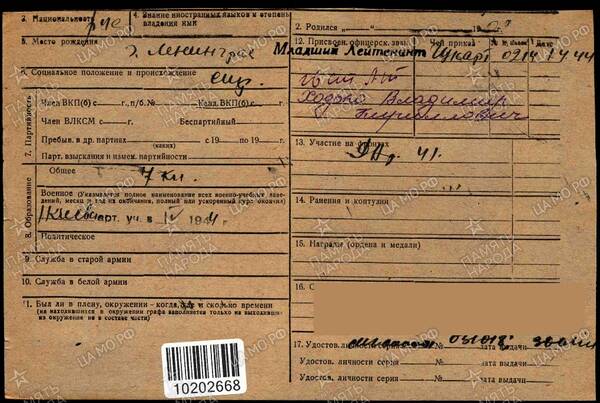 3. Национальность рус
4. Знание иностранных языков и степень
владения ими
5. Место рождения г. Ленинград
6. Социальное положение и происхождение служ.
7. Партийность
Член ВКП(б) с г., п/б. № Канд. ВКП(б) с г.
Член ВЛКСМ с г. Беспартийный
Пребыв. в др. партиях с 19 по 19 г.
(каких)
Парт. взыскания и измен. партийности
8. Образование
Общее 7 кл.
Военное (Указывать полное наименование всех военно-учебных заве-
дений, месяц и год их окончания, полный или ускоренный курс окончил)
арт. уч. в IV 1944 г.
Политическое
9. Служба в старой армии
10. Служба в белой армии
11. Был ли в плену, окружении - когда, где и сколько времени
(на находившихся в окружении графа заполняется только на выходивших
из окружения не в составе части)
10202668
2. Родился „ " 19 г.
12. Присвоен. офицерск. звание Чей приказ № приказа Дата
Младший Лейтенант 0214 14 44
Ходько Владимир
Кириллович
13. Участие на фронтах
41.
14. Ранения и контузии
15. Награды (ордена и медали)
16. С
17. Удостов. личности серия № дата выдачи
Удостов. личности серия № дата выдачи
Удостов. личности серия № дата выдачи
ПАМЯТЬ НАРОДА
ЦАМО.РФ